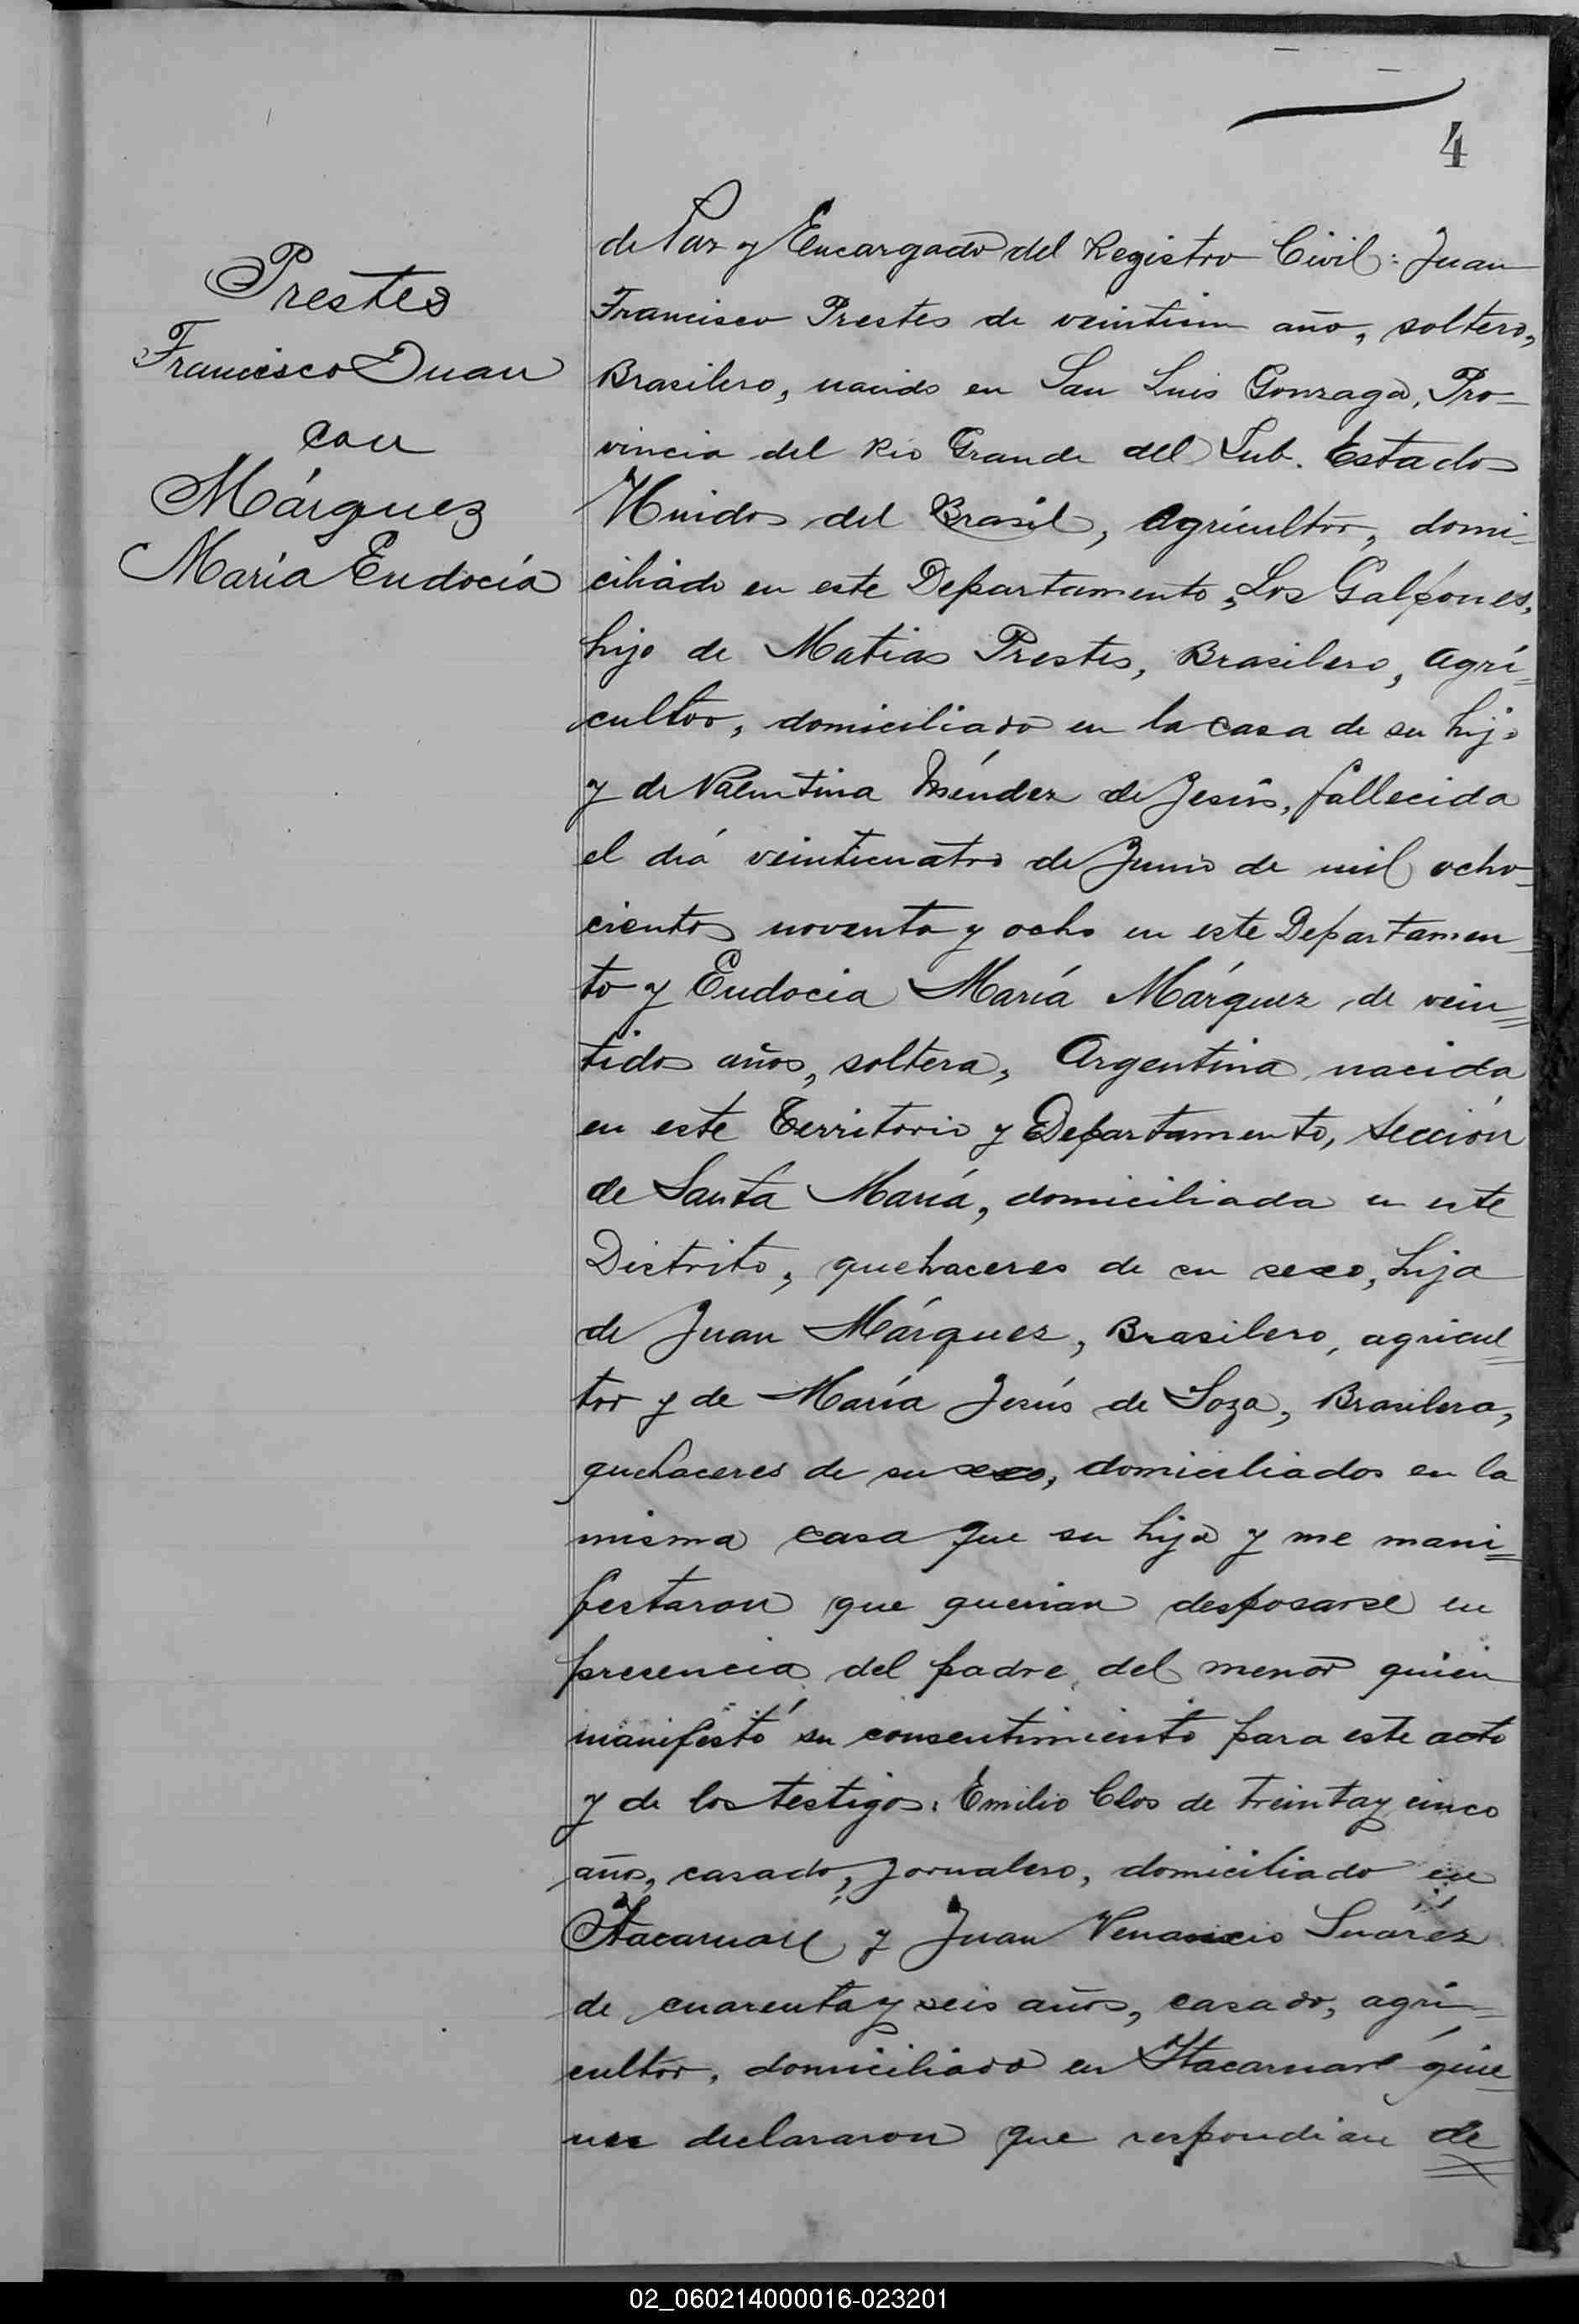 4
Prestes
Francisco Juan
con
Márquez
María Eudocia
de Paz y Encargado del Registro Civil: Juan
Francisco Prestes de veintiun año, soltero,
Brasilero, nacido en San Luis Gonzaga, Pro-
vincia del Rio Grande del Sub. Estados
Unidos del Brasil, agricultor, domi-
ciliado en este Departamento, Los Galpones,
hijo de Matias Prestes, Brasilero, agri-
cultor, domiciliado en la casa de su hijo
y de Valentina Méndez de Jesús, fallecida
el diá veinticuatro de Junio de mil ocho-
cientos noventa y ocho en este Departamen-
to y Eudocia María Márquez de vein-
tidos años, soltera, Argentina nacida
en este Territorio y Departamento, sección
de Santa María, domiciliada en este
Distrito, quehaceres de su sexo, hija
de Juan Márquez, Brasilero, agricul-
tor y de María Jesús de Soza, Brasilera,
quehaceres de su sexo, domiciliados en la
misma casa que su hija y me mani-
festaron que querian desposarse en
presencia del padre del menor quien
manifestó su consentimiento para este acto
y de los testigos: Emilio Clos de treinta y cinco
años, casado, jornalero, domiciliado en
Itacaruaré y Juan Venancio Suárez
de cuarenta y seis años, casado, agri-
cultor, domiciliado en Itacaruaré quie-
nes declararon que respondian de
02_060214000016-023201